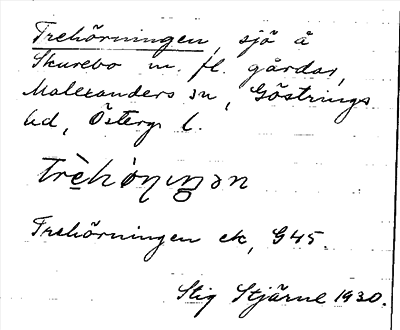 Trehörningen, sjö å
Skurebo m. fl. gårdar,
Malexanders sn, Göstrings
hd, Österg. l.
Trehörningen ek, G45.
Stig Stjärne 1930.